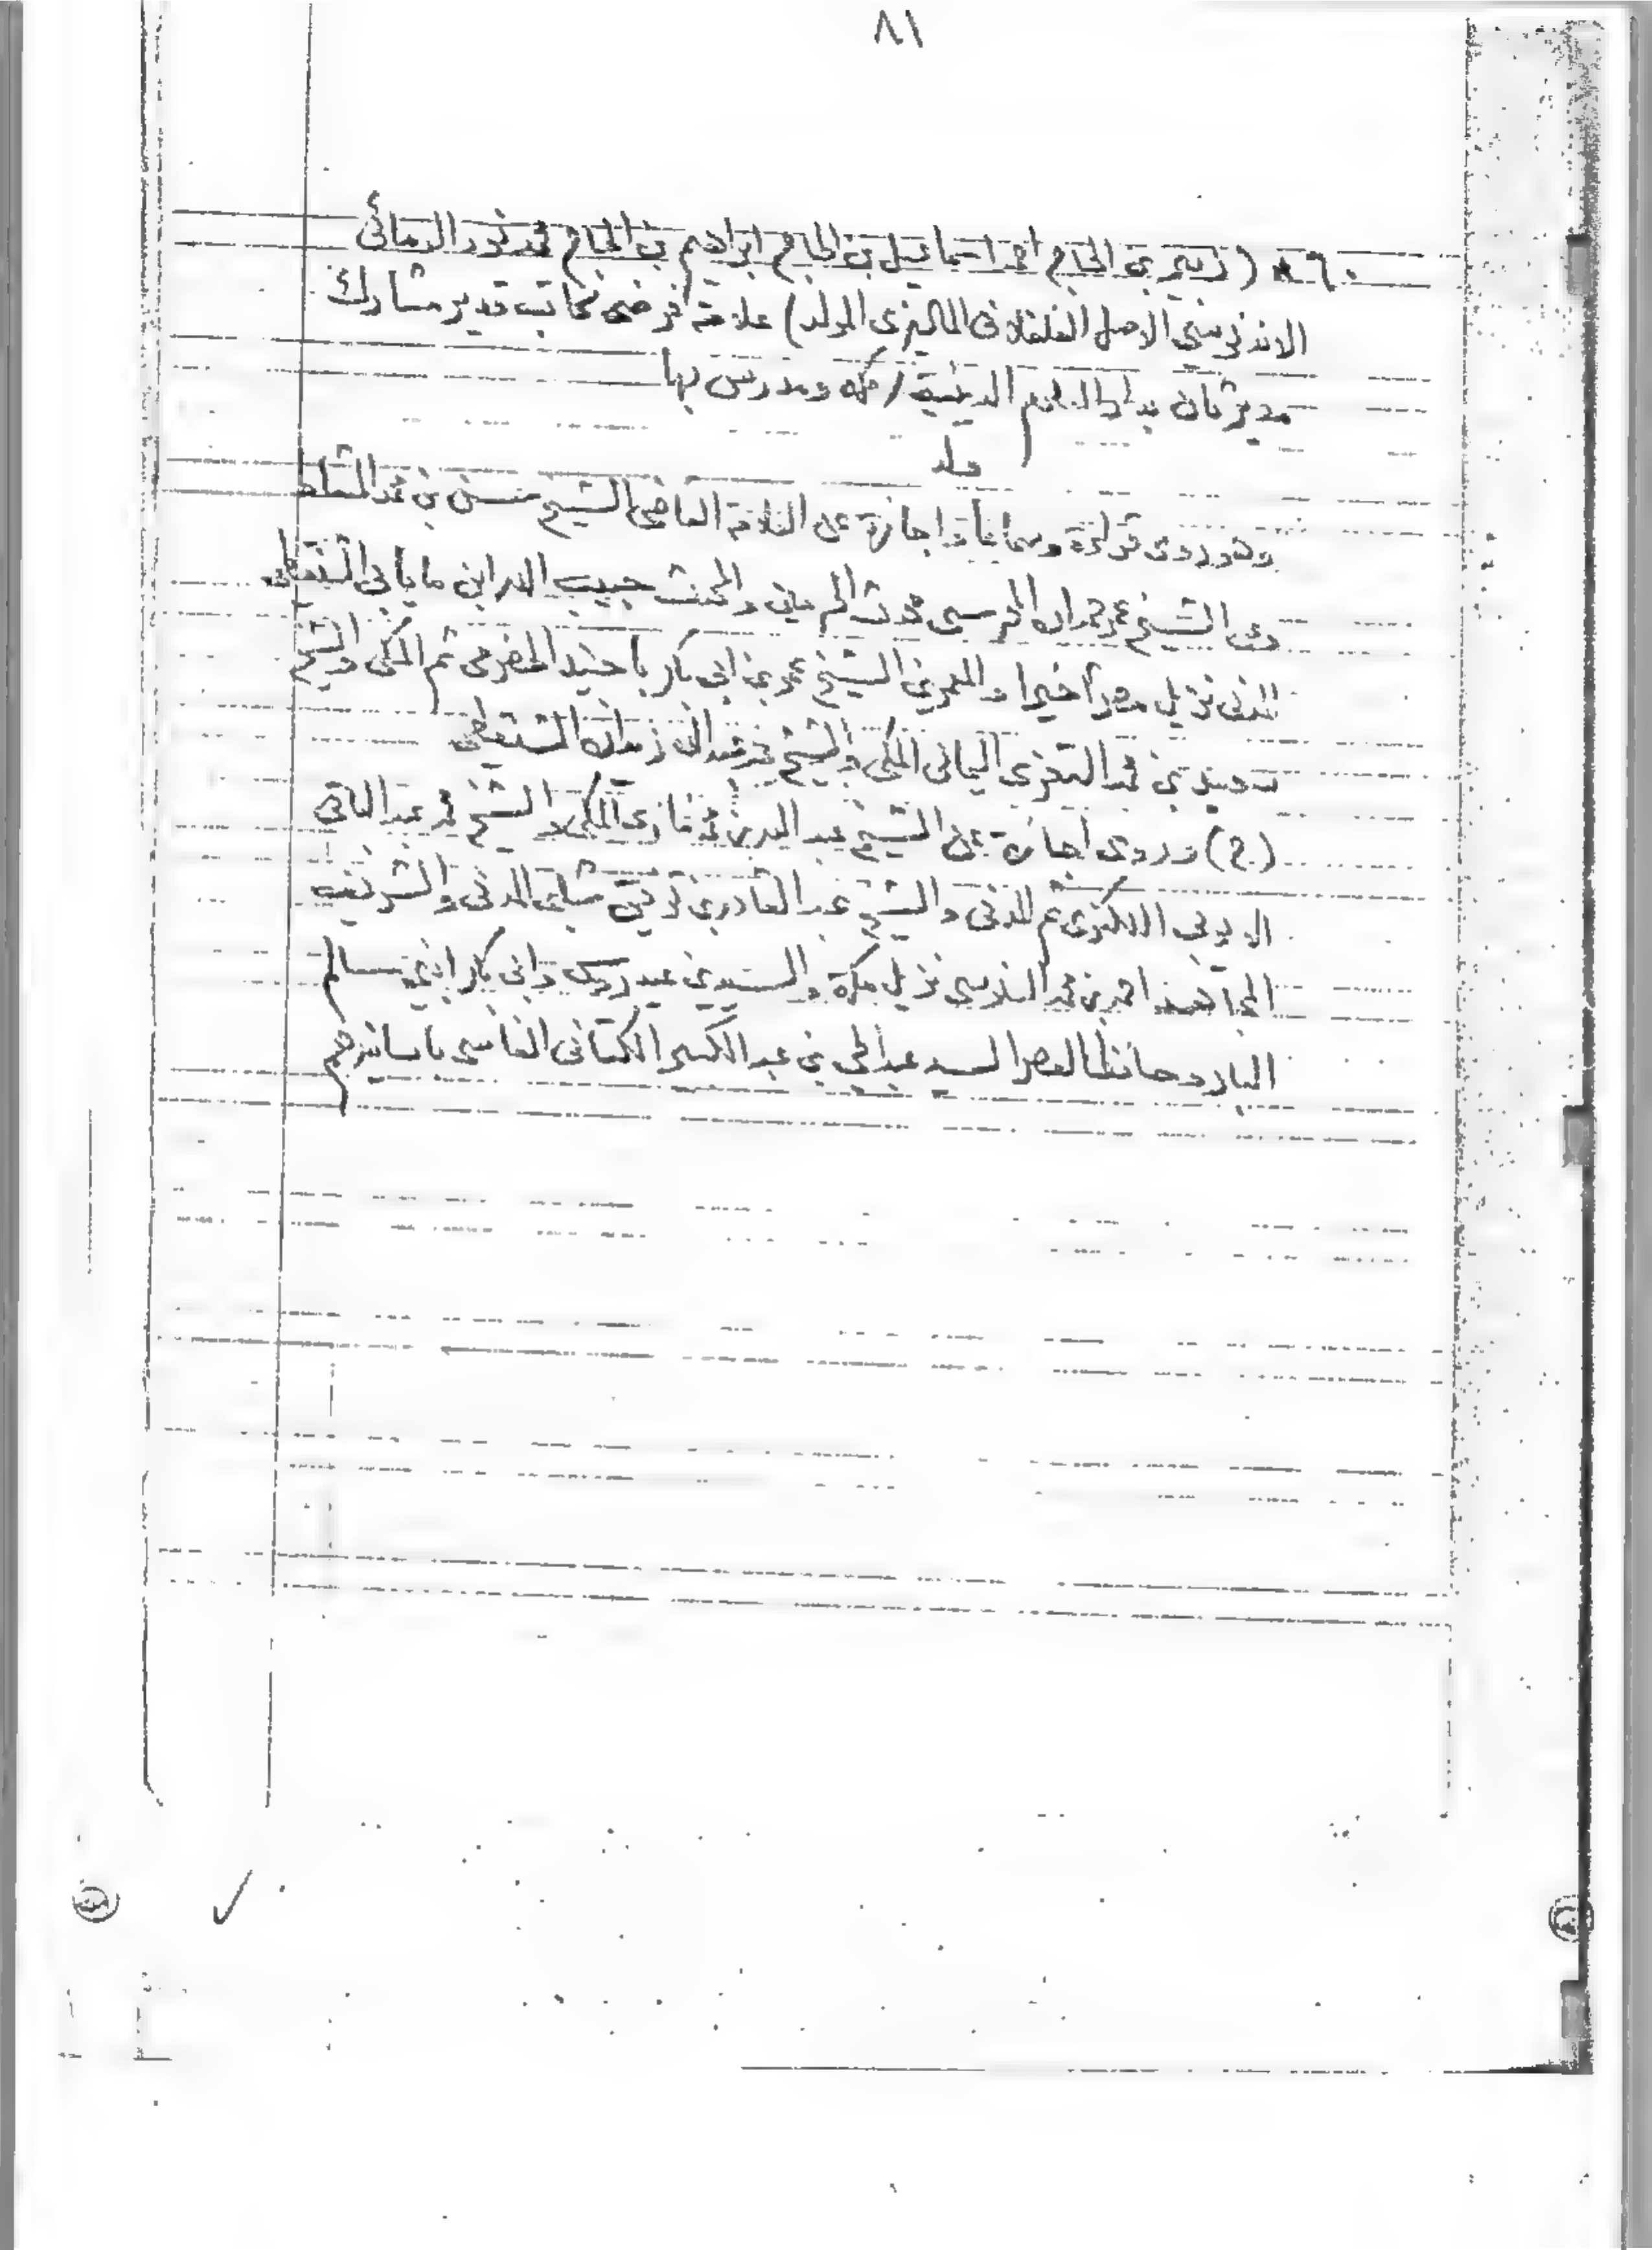 ٨١
٦٠ * (زبير بن الحاج احمد اسماعيل بن الحاج ابراهيم بن الحاج محمد نور
الاندنوسي الاصل الفلفلاني الماليزى المولد) علامة فرضى كاتب قدير مشارك
مدير ثان بدار العلوم الدينية / مكه ومدرس بها
وهو روى قراءة وسماعا واجازة عن العلامة القاضى الشيخ حسن بن محمد المشاط
وعن الشيخ عمر حمدان المحرسى محدث الحرمين والمحدث حبيب الله ابن مايابى الشنقيطى
المدنى نزيل مصر أخيرا والمعمر الشيخ عمر بن ابى بكر باجنيد الحضرمى ثم المكى والشيخ
سعيد بن محمد اليمانى المكى والشيخ محمد عبد الله زيدان الشنقيطى
(2) وروى اجازة عن الشيخ عبد الله بن محمد غازى المكى والشيخ محمد عبد الباقى
الايوبى اللكنوى ثم المدنى والشيخ عبد القادر بن توفيق شلبى المدنى والشريف
المجاهد احمد بن محمد السنوسى نزيل مكة والسيدين عيدروس وابى بكر ابنى سالم
البار وحافظ العصر السيد عبد الحى بن عبد الكبير الكتانى الفاسى باسانيدهم